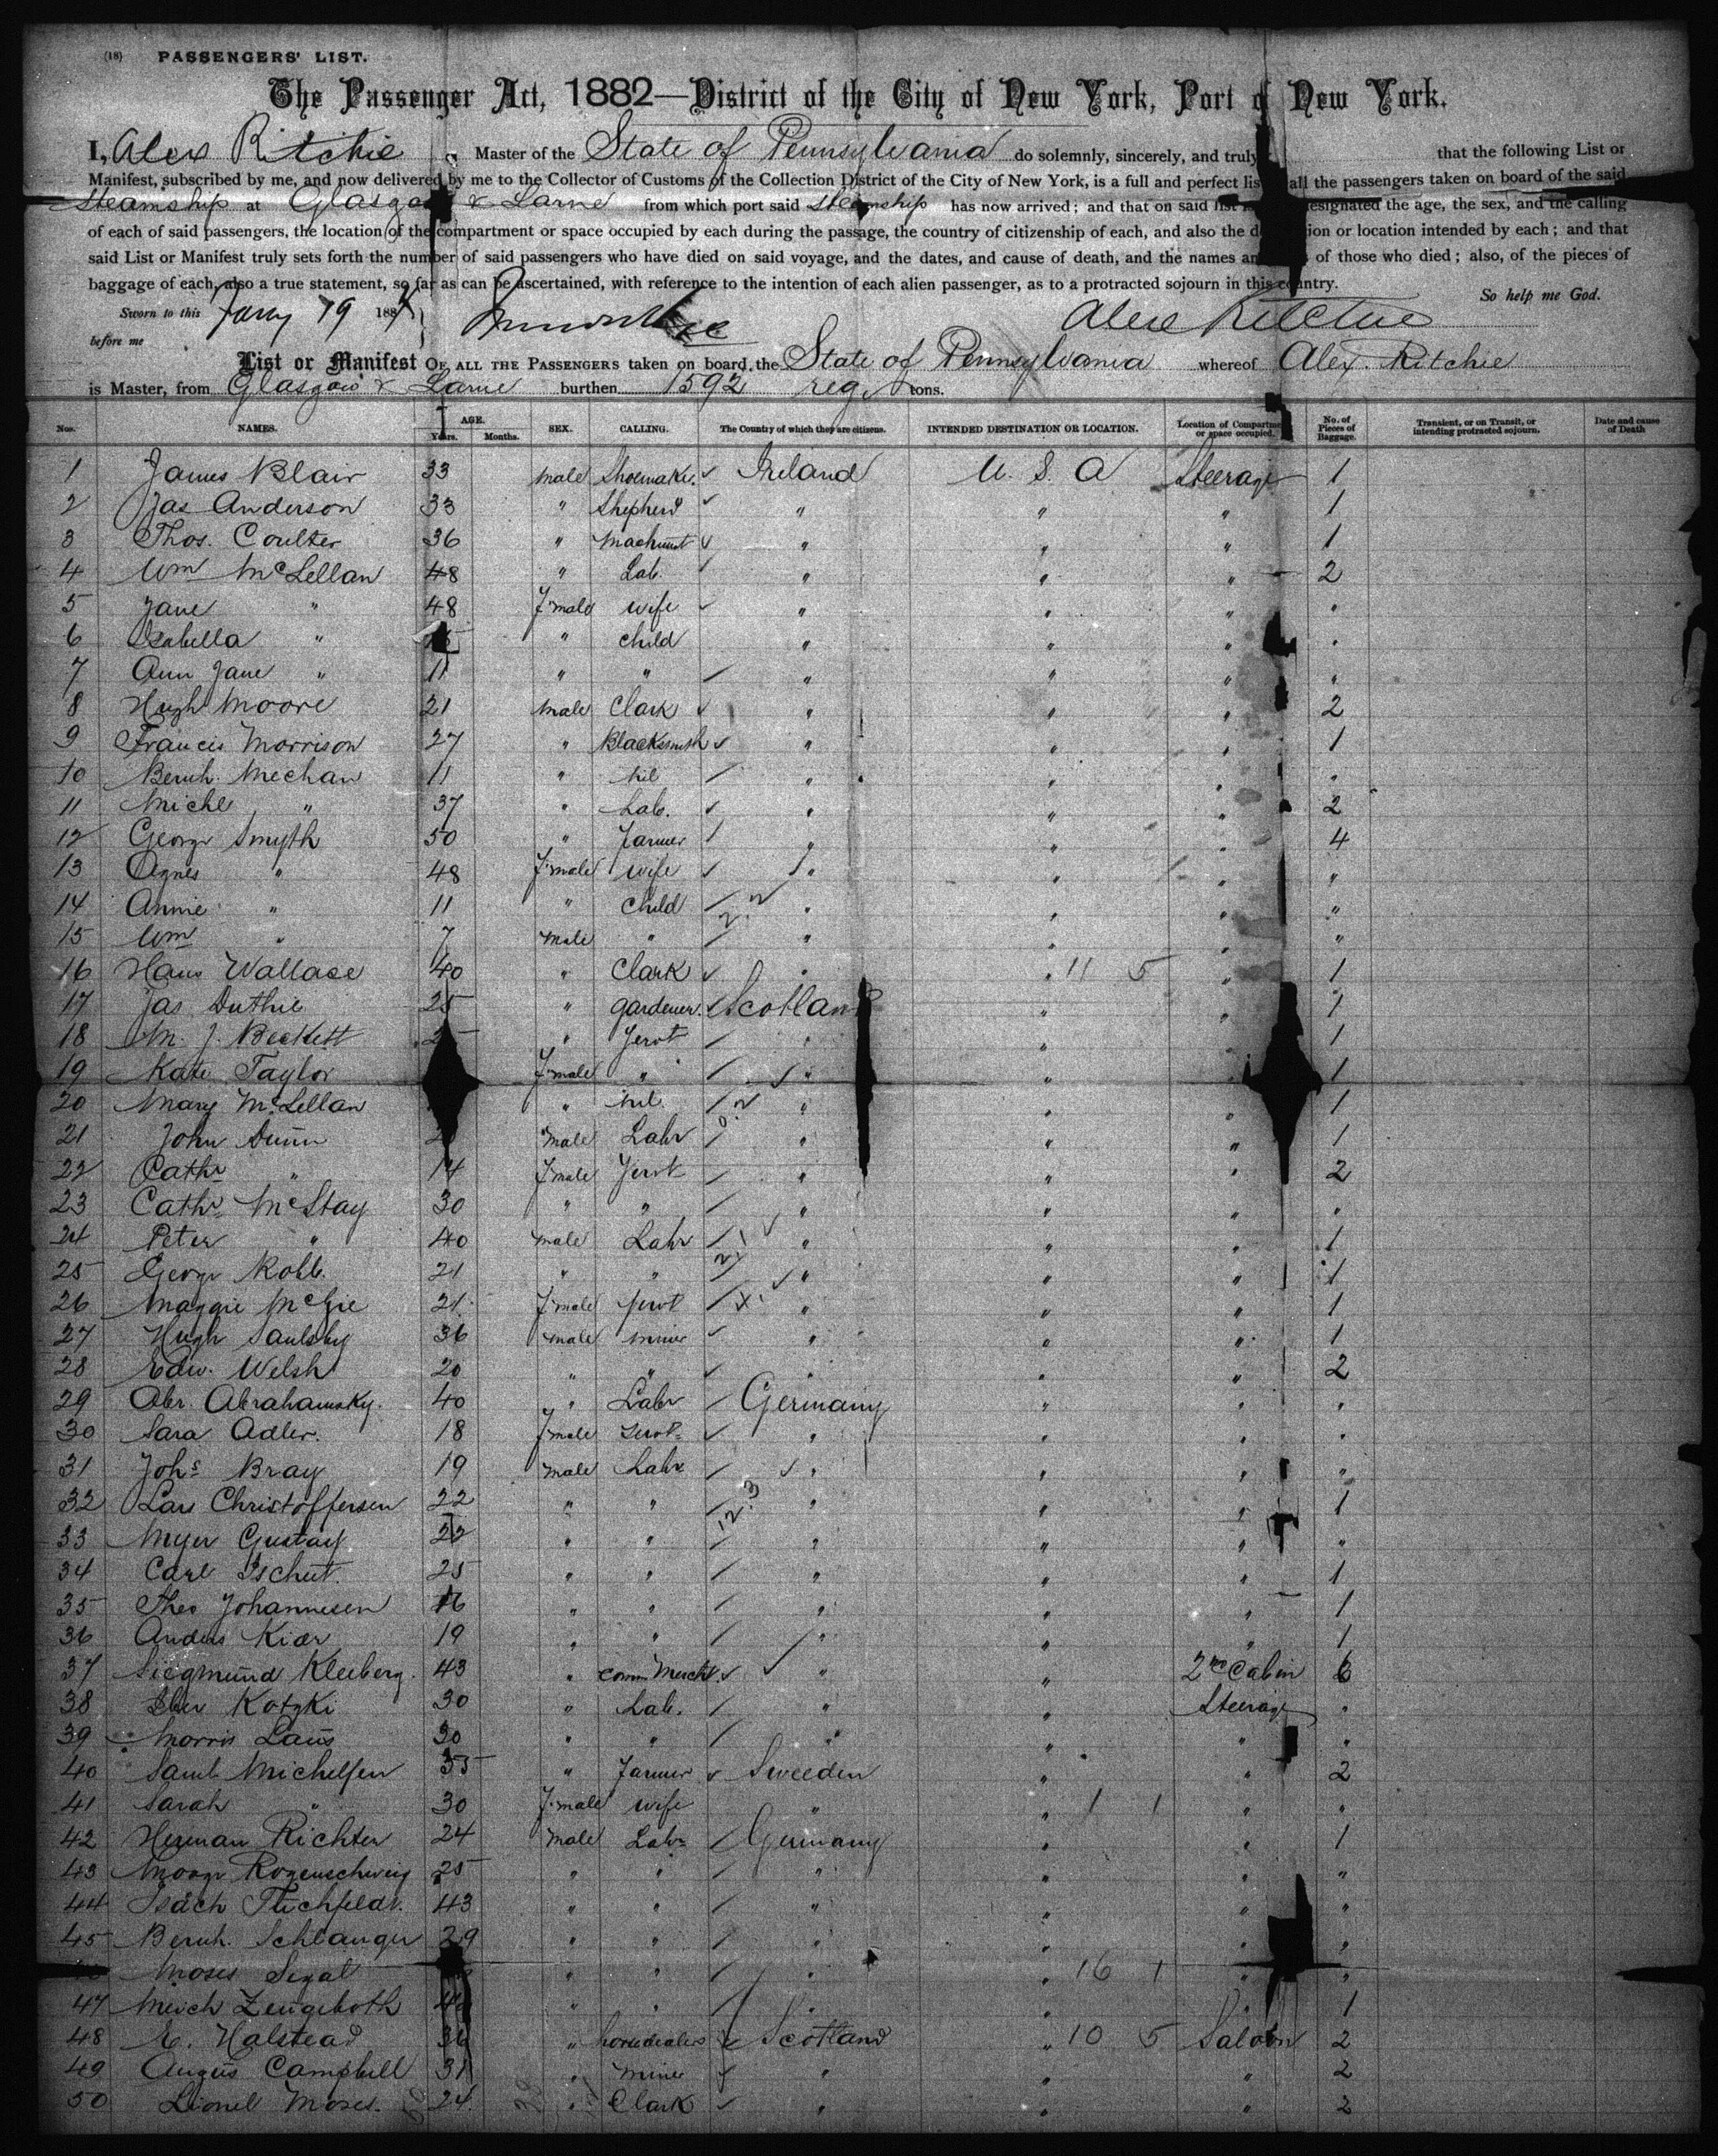 (18) PASSENGERS' LIST.
The Passenger Act, 1882—District of the City of New York, Port of New York.
I, Alex Ritchie Master of the State of Pennsylvania do solemnly, sincerely, and truly that the following List or
Manifest, subscribed by me, and now delivered by me to the Collector of Customs of the Collection District of the City of New York, is a full and perfect list all the passengers taken on board of the said
Steamship at Glasgow & Larne from which port said Steamship has now arrived; and that on said list is designated the age, the sex, and the calling
of each of said passengers, the location of the compartment or space occupied by each during the passage, the country of citizenship of each, and also the destination or location intended by each; and that
said List or Manifest truly sets forth the number of said passengers who have died on said voyage, and the dates, and cause of death, and the names and of those who died; also, of the pieces of
baggage of each, also a true statement, so far as can be ascertained, with reference to the intention of each alien passenger, as to a protracted sojourn in this country.
So help me God.
Sworn to this Jany 19 188 Alex Ritchie
before me
List or Manifest OF ALL THE PASSENGERS taken on board the State of Pennsylvania whereof Alex. Ritchie
is Master, from Glasgow & Larne burthen 1592 reg. tons.
Nos. NAMES. AGE. Years. Months. SEX. CALLING. The Country of which they are citizens. INTENDED DESTINATION OR LOCATION. Location of Compartment or space occupied. No. of Pieces of Baggage. Transient, or on Transit, or intending protracted sojourn. Date and cause of Death
1 James Blair 33 male Shoemaker. Ireland U. S. A Steerage 1
2 Jas Anderson 33 " Shepherd " " " 1
3 Thos. Coulter 36 " Machinist " " " 1
4 Wm McLellan 48 " Lab. " " " 2
5 Jane " 48 Fmale wife " " " "
6 Isabella " " child " " " "
7 Ann Jane " 11 " " " " " "
8 Hugh Moore 21 male Clark " " " 2
9 Francis Morrison 27 " Blacksmith " " " 1
10 Bernh. Mechan 11 " nil " " " "
11 Michl " 37 " Lab. " " " 2
12 George Smyth 50 " Farmer " " " 4
13 Agnes " 48 Fmale wife " " " "
14 Annie " 11 " Child " " " "
15 Wm " 7 male " " " " "
16 Hans Wallace 40 " Clark " " 11 5 " 1
17 Jas Duthie 25 " gardener. Scotland " " 1
18 M. J. Beckett " " " " 1
19 Kate Taylor Fmale " " " " 1
20 Mary McLellan " nil. " " " 1
21 John Dunn male Labr " " " 1
22 Cathr " 14 Fmale " " " 2
23 Cathr McStay 30 " " " " " "
24 Peter " 40 male Labr " " " 1
25 George Robb. 21 " " " " " 1
26 Maggie McGie 21 Fmale " " " 1
27 Hugh Saulsby 36 male miner " " " 1
28 Edw. Welsh 20 " " " " " 2
29 Abr. Abrahamsky. 40 " Labr Germany " " "
30 Sara Adler. 18 Fmale " " " "
31 Johs Bray 19 male Labr " " " "
32 Lars Christoffersen 22 " " " " " 1
33 Myer Gustav 22 " " " " " "
34 Carl 25 " " " " " 1
35 Theo Johannesen 16 " " " " " 1
36 Anders Kiær 19 " " " " " 1
37 Siegmund Kleeberg. 43 " Comm Mercht. " " 2nd Cabin 6
38 Kotzki 30 " Lab. " " Steerage "
39 Morris Laus 30 " " " " " "
40 Saml Michelsen 35 " Farmer Sweeden " " 2
41 Sarah " 30 Fmale wife " " 1 1 " "
42 Herman Richter 24 male Labr Germany " " 1
43 Rogenschweig 25 " " " " " "
44 Isach 43 " " " " " "
45 Bernh. Schlanger 29 " " " " " "
Moses Segal " " " " 16 1 " "
47 " " " " " 1
48 E. Halstead 36 " horsedealers Scotland " 10 5 Saloon 2
49 Angus Campbell 31 " miner " " " 2
50 Lionel Moses. 24 " Clark " " " 2